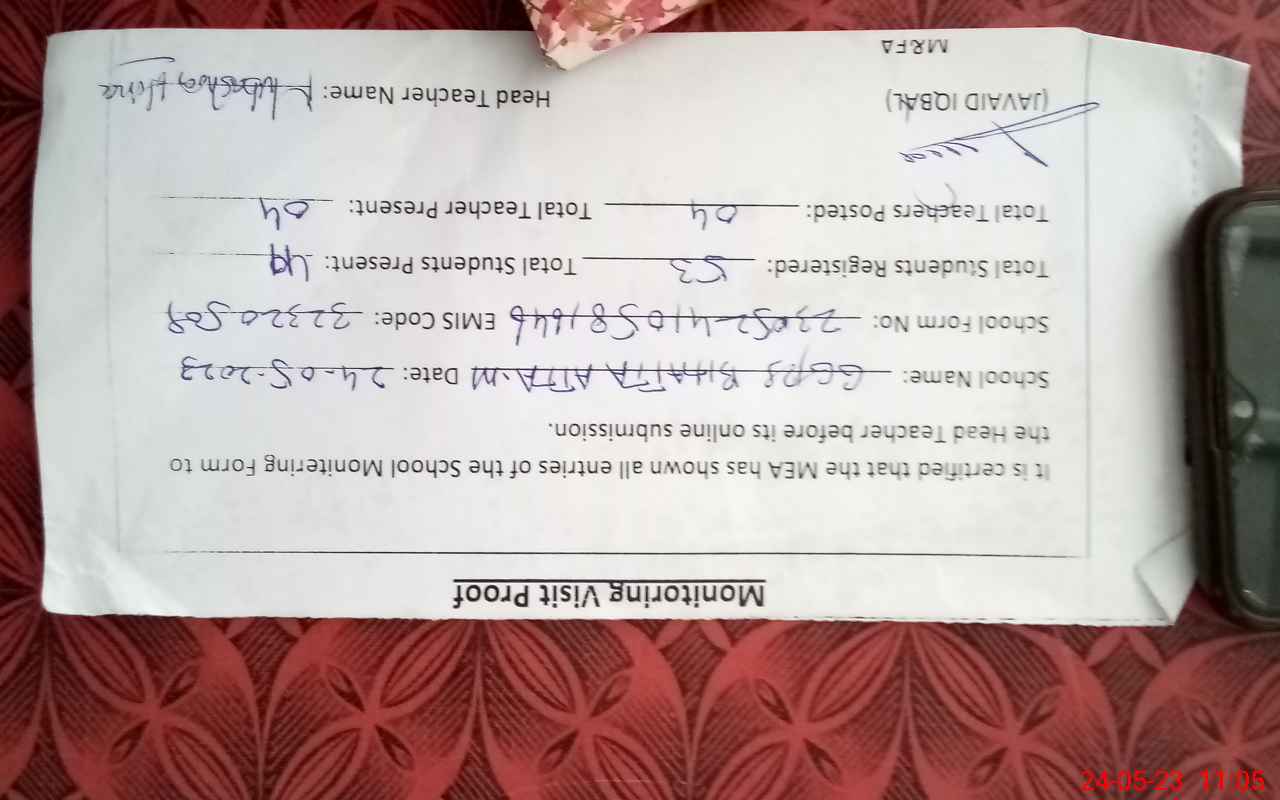 Monitoring Visit Proof
It is certified that the MEA has shown all entries of the School Monitering Form to
the Head Teacher before its online submission.
School Name: GGPS BHATTA ATTA.M Date: 24-05-2023
School Form No: EMIS Code:
Total Students Registered: 53 Total Students Present: 49
Total Teachers Posted: 04 Total Teacher Present: 04
(JAVAID IQBAL) Head Teacher Name:
M&FA
24-05-23 11:05